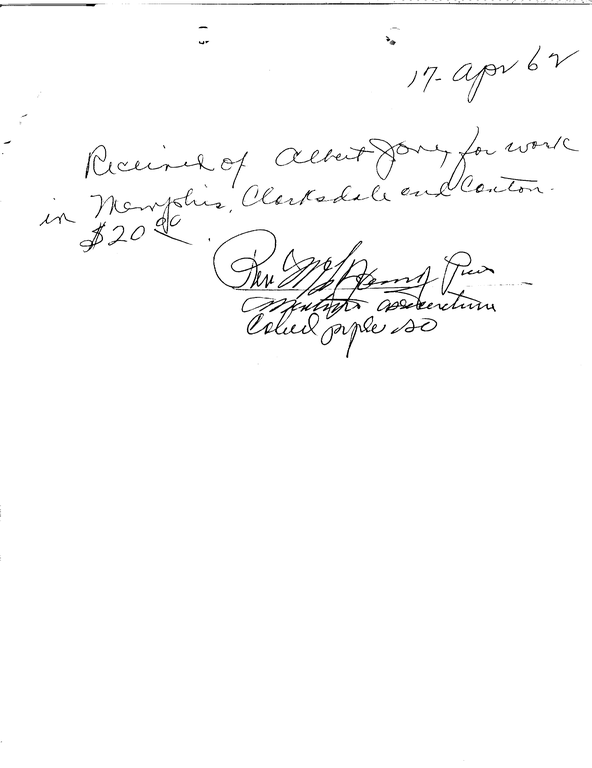 17- Apr 62
Received of Albert Jones for work
in Memphis, Clarksdale and Canton.
$20 00
Rev M L Henry Pres
association
Colred peple so